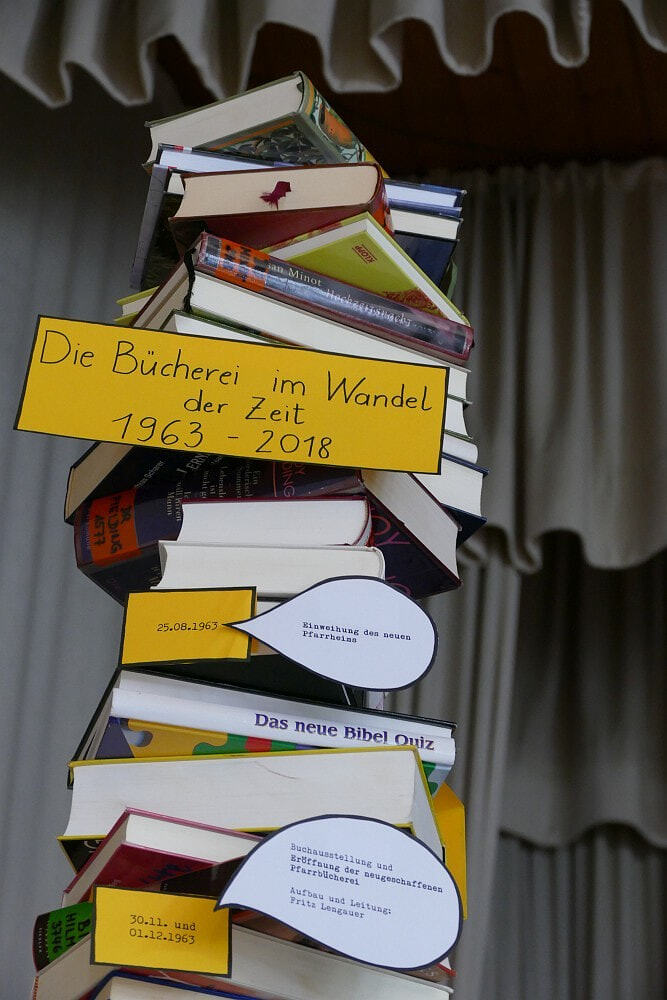 KLOPP
san Minot
Hochzeitsnacht
Die Bücherei im Wandel
der Zeit
1963 - 2018
FIELDING
A577
25.08.1963
Einweihung des neuen
Pfarrheims
Das neue Bibel Quiz
Buchausstellung und
Eröffnung der neugeschaffenen
Pfarrbücherei
Aufbau und Leitung:
Fritz Lengauer
30.11. und
01.12.1963
HILM
3746